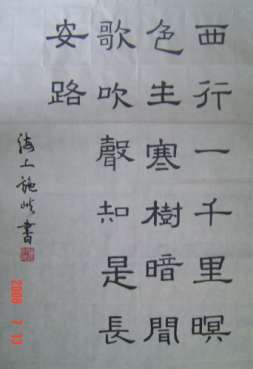 西行一千里暝
色生寒樹暗聞
歌吹聲知是長
安路
海上施書
2008 7 13